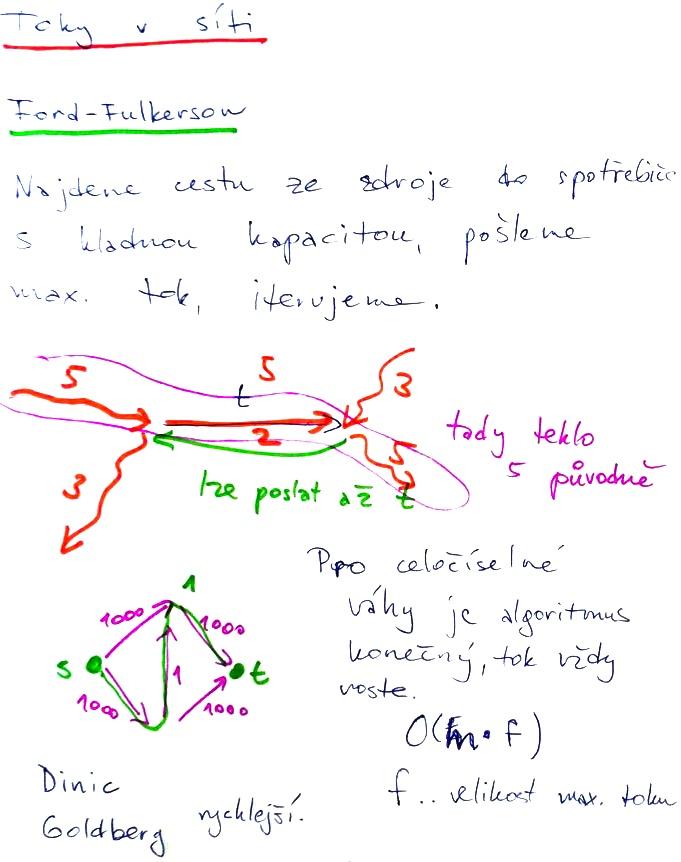 Toky v síti
Ford-Fulkerson
Najdeme cestu ze zdroje do spotřebiče
s kladnou kapacitou, pošleme
max. tok, iterujeme.
5
5
3
t
2
3
5
tady teklo
5 původně
lze poslat až t
Pro celočíselné
váhy je algoritmus
konečný, tok vždy
roste.
1
1000
1000
s
1
t
1000
1000
O(m·f)
f .. velikost max. toku
Dinic
Goldberg rychlejší.